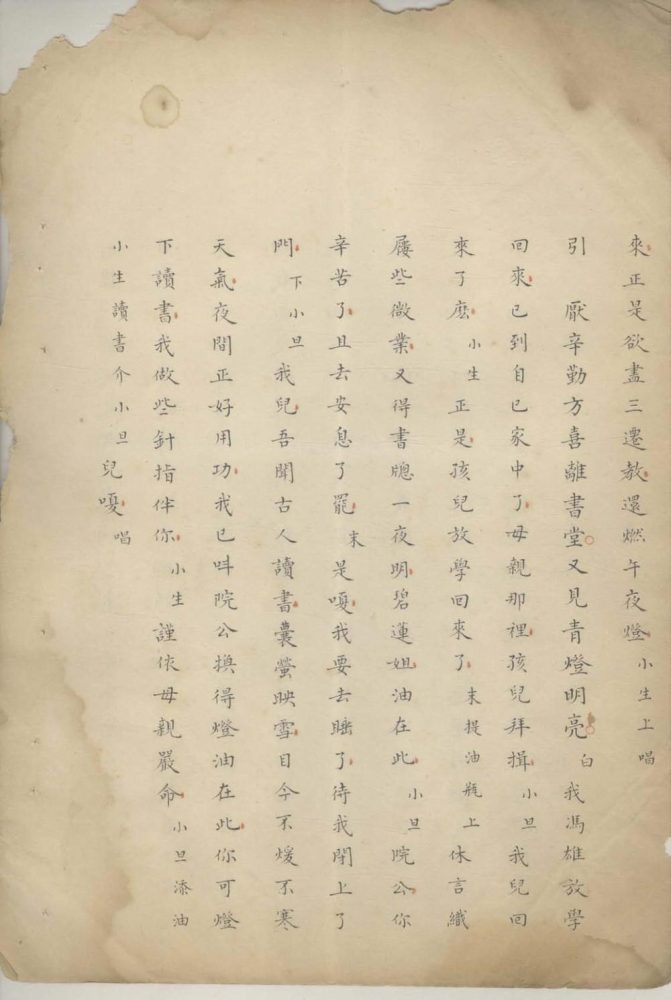 來正是欲盡三遷教還燃午夜燈小生上唱
引 厭辛勤方喜離書堂又見青燈明亮白我馮雄放學
回來已到自已家中了母親那裡孩兒拜揖小旦我兒回
來了麽小生正是孩兒放學回來了末提油瓶上休言織
屨些微業又得書牕一夜明碧蓮姐油在此小旦院公你
辛苦了且去安息了罷末是嗄我要去睡了待我閉上了
門下小旦我兒吾聞古人讀書囊螢映雪目今不煖不寒
天氣夜間正好用功我已呌院公換得燈油在此你可燈
下讀書我做些針指伴你小生謹依母親嚴命小旦添油
小生讀書介小旦兒嗄唱